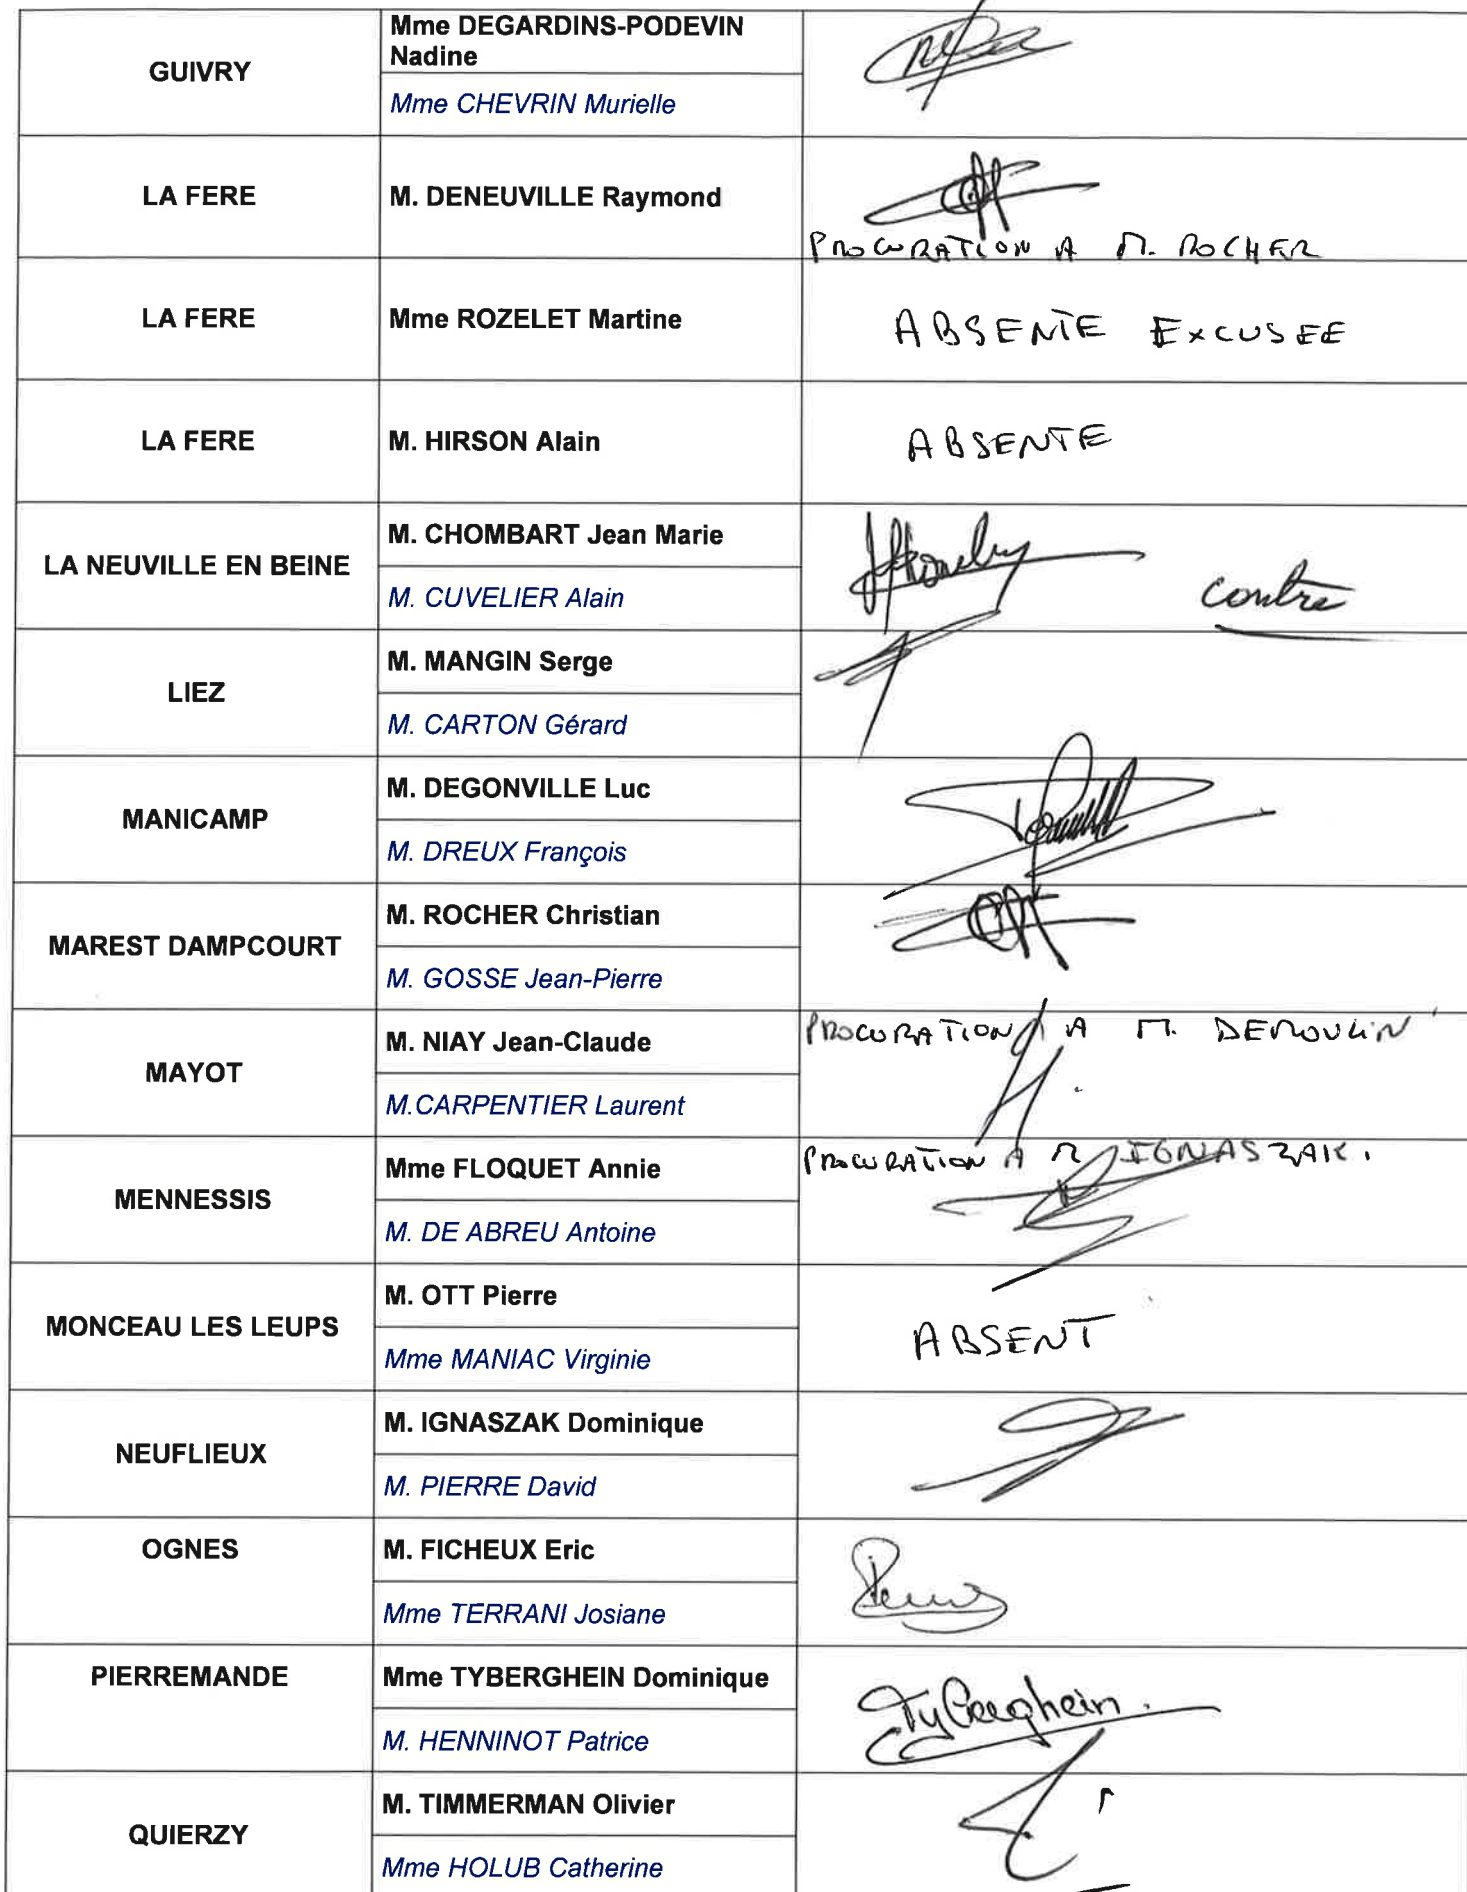 GUIVRY
Mme DEGARDINS-PODEVIN
Nadine
Mme CHEVRIN Murielle
LA FERE
M. DENEUVILLE Raymond
PROCURATION A M. ROCHER
LA FERE
Mme ROZELET Martine
ABSENTE EXCUSEE
LA FERE
M. HIRSON Alain
ABSENTE
LA NEUVILLE EN BEINE
M. CHOMBART Jean Marie
M. CUVELIER Alain
contre
LIEZ
M. MANGIN Serge
M. CARTON Gérard
MANICAMP
M. DEGONVILLE Luc
M. DREUX François
MAREST DAMPCOURT
M. ROCHER Christian
M. GOSSE Jean-Pierre
MAYOT
M. NIAY Jean-Claude
PROCURATION A M. DEMOULIN
M.CARPENTIER Laurent
MENNESSIS
Mme FLOQUET Annie
PROCURATION A M IGNASZAK.
M. DE ABREU Antoine
MONCEAU LES LEUPS
M. OTT Pierre
Mme MANIAC Virginie
ABSENT
NEUFLIEUX
M. IGNASZAK Dominique
M. PIERRE David
OGNES
M. FICHEUX Eric
Mme TERRANI Josiane
PIERREMANDE
Mme TYBERGHEIN Dominique
M. HENNINOT Patrice
Tyberghein.
QUIERZY
M. TIMMERMAN Olivier
Mme HOLUB Catherine